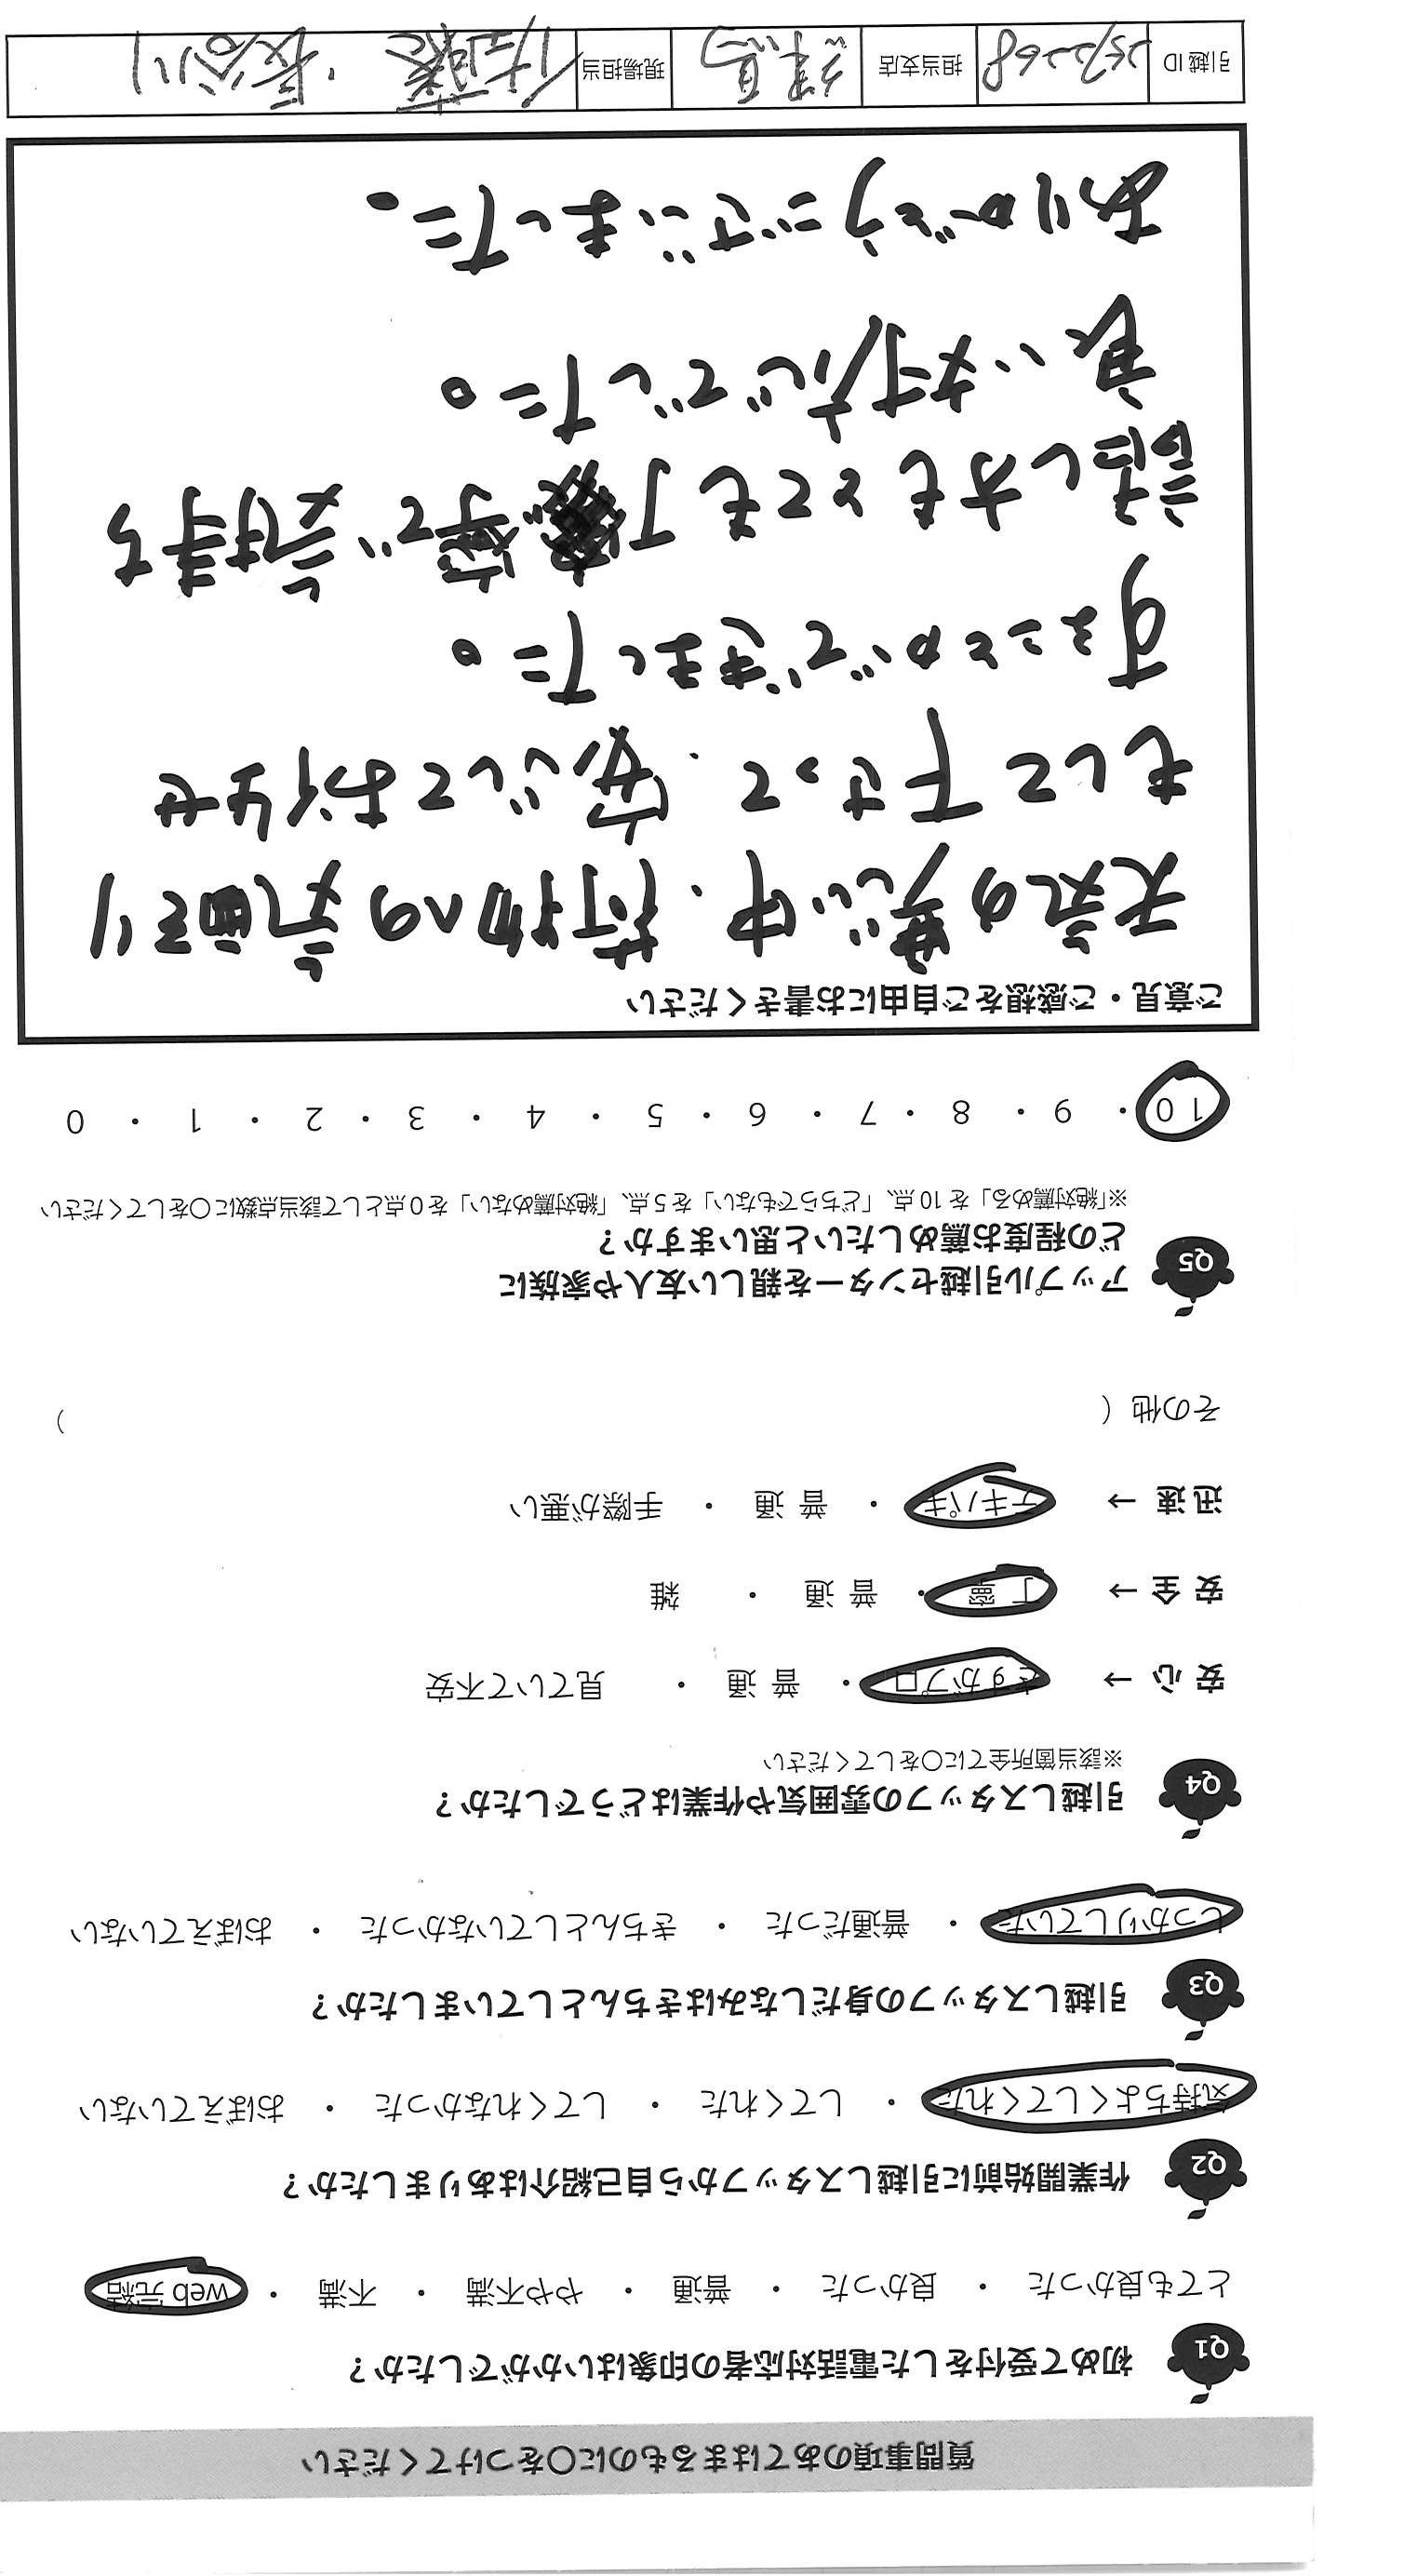 質問事項のあてはまるものに○をつけてください
Q1 初めて受付をした電話対応者の印象はいかがでしたか？
とても良かった ・ 良かった ・ 普通 ・ やや不満 ・ 不満 ・ web完結
Q2 作業開始前に引越しスタッフから自己紹介はありましたか？
気持ちよくしてくれた ・ してくれた ・ してくれなかった ・ おぼえていない
Q3 引越しスタッフの身だしなみはきちんとしていましたか？
しっかりしていた ・ 普通だった ・ きちんとしていなかった ・ おぼえていない
Q4 引越しスタッフの雰囲気や作業はどうでしたか？
※該当箇所全てに○をしてください
安 心 → さすがプロ ・ 普 通 ・ 見ていて不安
安 全 → 丁 寧 ・ 普 通 ・ 雑
迅 速 → テキパキ ・ 普 通 ・ 手際が悪い
その他（ ）
Q5 アップル引越センターを親しい友人や家族に
どの程度お薦めしたいと思いますか？
※「絶対薦める」を10点、「どちらでもない」を5点、「絶対薦めない」を0点として該当点数に○をしてください
10 ・ 9 ・ 8 ・ 7 ・ 6 ・ 5 ・ 4 ・ 3 ・ 2 ・ 1 ・ 0
ご意見・ご感想をご自由にお書きください
天気の悪い中、荷物への気配り
をして下さって、安心してお任せ
することができました。
話し方もとても丁寧で気持ち
良い対応でした。
ありがとうございました。
引越ID 2572268 担当支店 練馬 現場担当 佐藤、長谷川